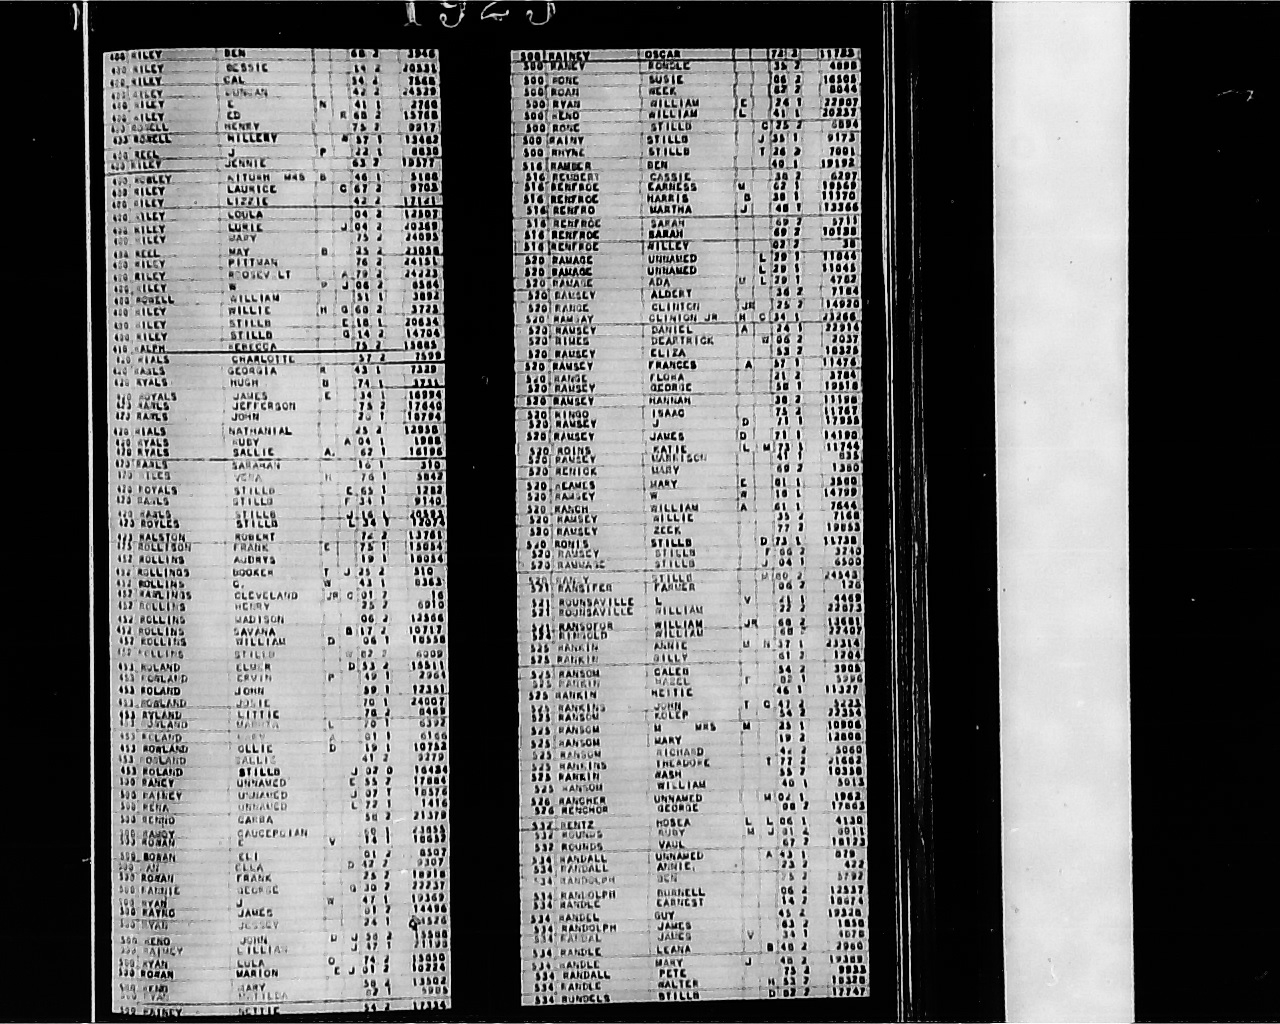 1925
400 RILEY BEN 68 2 3946
400 RILEY BESSIE 14 2 20331
400 RILEY CAL 54 2 7568
400 RILEY DUNCAN 42 2 24539
400 RILEY E N 41 1 2766
400 RILEY ED R 68 2 15768
400 ROWELL HENRY 75 2 9917
400 ROWELL HILLERY W 57 1 13462
400 REEL J P 22 1 8830
400 RILEY JENNIE 63 2 19577
400 ROWLEY KITURH MRS B 46 1 5188
400 RILEY LAURICE C 67 2 9703
400 RILEY LIZZIE 42 2 17121
400 RILEY LOULA 04 2 12507
400 RILEY LURIE J 04 2 20369
400 RILEY MARY 75 2 24095
400 REEL MAY B 25 2 23058
400 RILEY PITTMAN 76 2 24151
400 RILEY ROOSEVELT A 79 2 24223
400 RILEY W P J 06 2 6564
400 ROWELL WILLIAM 51 1 3892
400 RILEY WILLIE H G 60 2 3723
400 RILEY STILLB E 18 1 20634
400 RILEY STILLB G 14 2 14704
410 RALPH REBECCA 75 2
420 RIALS CHARLOTTE 57 2 7599
420 RAILS GEORGIA R 43 1 7329
420 RYALS HUGH B 74 1
420 ROYALS JAMES E 34 1 16994
420 RAWLS JEFFERSON 75 2 17640
420 RAWLS JOHN 17094
420 RIALS NATHANIAL 25 2 12958
420 RYALS RUBY A 04 1 1988
420 RYALS SALLIE A 62 1 16196
420 RAWLS SARAHAN 16 1 310
420 RILES VERA H 76 1 5842
420 ROYALS STILLB E 65 1 1282
420 RAWLS STILLB F 34 1 9140
420 RAWLS STILLB J 16 1
423 ROYLES STILLB L 34 1 12074
423 RALSTON ROBERT 72 2 13761
425 ROLLISON FRANK E 75 1 15054
452 ROLLINS AUDRYS 19 1 16054
452 ROLLINGS BOOKER T J 25 2 510
452 ROLLINS C. W 43 1 8363
452 RAWLINGS CLEVELAND JR C 01 2 16
452 ROLLINS HENRY 25 2 6910
452 ROLLINS MADISON 06 2 12566
452 ROLLINS SAVANA B 17 2 10717
452 ROLLINS WILLIAM D 06 1 18558
452 ROLLINS STILLB W 82 2 6009
453 ROLAND ELMER D 53 2 15511
453 ROWLAND ERVIN P 49 1 2964
453 ROLAND JOHN 59 1 12351
453 ROWLAND JOSIE 70 1 24007
453 RYLAND LITTIE 78 2 8469
453 ROWLAND L 70 1 6392
453 ROLAND MARY A 01 1 6166
453 ROWLAND OLLIE D 19 1 10752
453 ROWLAND SALLIE 41 2 9279
453 ROLAND STILLB J 02 0 16434
500 RANEY UNNAMED E 55 2 17884
500 RAINEY UNNAMED J 07 1 18576
500 RENA UNNAMED L 72 1 1416
500 RENNO GARBA 58 2 21379
500 RANDY GAUCEPCIAN 60 1 23855
500 ROWAN E V 14 1 18652
500 ROWAN ELI 01 2 8507
ELLA D 42 2 9307
500 ROWAN FRANK 25 2 8918
500 RANNIE GEORGE G 30 2 22237
500 RYAN J W 47 1 19369
500 RAYNO JAMES 01 2 14496
500 RYAN JESSEY 24 1
500 RENO JOHN D J 58 2 15508
500 RAINEY LILLIAN J 47 1
500 RYAN LULA O 74 2 15050
500 ROWAN MARION E J 01 2 10224
500 RENO MARY 58 2 13502
500 RYAN MATILDA 82 1 5905
500 RAINEY NETTIE 54 2 17354
500 RAINEY OSCAR 72 2 11783
500 RANEY RONDLE 35 2 4898
500 RONE SUSIE 06 2 16505
500 ROAN WEEK 82 2 8044
500 RYAN WILLIAM E 24 1 22907
500 RENO WILLIAM L 41 1 20237
500 RONE STILLB C 75 2 6894
500 RAINY STILLB J 35 1 9173
500 RHYNE STILLB T 26 2 7001
516 RAMBER BEN 40 1 19192
516 REUBERT CASSIE 38 2 6297
516 RENFROE EARNESS M 62 1 19569
516 RENFROE HARRIS B 38 1 11170
516 RENFRO MARTHA J 48 1 13366
516 RENFROE SARAH 69 2 5711
516 RENFROE SARAH 69 2 10138
516 RENFROE WILLEY 02 2 38
520 RAMAGE UNNAMED L 29 1 11044
520 RAMAGE UNNAMED L 29 1 11045
520 RAMAGE ADA M L 29 1 4762
520 RAMSEY ALBERT 38 2 7184
520 RANGE CLINTON JR 25 2 14920
520 RAMSAY CLINTON JR H C 34 1 23266
520 RAMSEY DANIEL A 24 1 22914
520 RIMES DEARTRICK W 06 2 2037
520 RAMSEY ELIZA 53 2 18325
520 RAMSEY FRANCES A 57 1 11475
520 RANGE FLORA 21 2 3784
520 RAMSEY GEORGE 58 1 19516
520 RAMSEY HANNAH 38 2 11196
520 RINGO ISAAC 75 2 11767
520 RAMSEY J D 71 1 17955
520 RAMSEY JAMES D 71 1 14190
520 ROINS KATIE L M 73 1 11746
520 RAMSEY MARTISON
520 RENICK MARY 69 2 1360
520 REAMES MARY E 01 1 3560
520 RAMSEY W W 18 1 14799
520 RANCH WILLIAM A 61 1 7644
520 RAMSEY WILLIE 35 2 7168
520 RAMSEY ZEEK 77 2 19853
520 RONIS STILLB D 73 1 11738
520 RAMSEY STILLB F 06 2 3240
520 RAMMAGE STILLB J 04 1 6500
520 STILLB M 80 2 24543
521 RANSIFER FARMER 06 2 126
521 ROUNSAVILLE L V 4465
521 ROUNSAVILLE WILLIAM 22 2 22073
521 RANSOFUR WILLIAM JR 68 2 13681
524 RINGOLD WILLIAM 68 2 22407
525 RANKIN ANNIE M N 37 1 23314
525 RANKIN BILLY 61 1 1204
525 RANSOM CALEB 54 2 3905
525 RANKIN HAZEL F 82 1 3996
525 RANKIN HETTIE 46 1 11327
525 RANKINS JOHN T C 47 2 5223
525 RANSOM KOLEP 54 2 22354
525 RANSOM M MRS M 25 1 10906
525 RANSOM MARY 19 2 12806
525 RANSOM RICHARD 42 2 5060
525 RANKINS THEADORE T 77 2 21662
525 RANKIN WASH 55 2 10358
525 RANSOM WILLIAM 40 1 5013
526 RANCHER UNNAMED M 02 1 1962
526 RENCHOR GEORGE 08 2 17863
532 RENTZ HOSEA L L 06 1 4130
532 ROUNDS RUBY M J 01 2 8011
532 ROUNDS VAUL 67 2 18123
534 RANDALL UNNAMED A 43 1 879
534 RANDALL ANNIE 23 2 422
534 RANDOLPH BEN 75 2 5792
534 RANDOLPH BURNELL 06 2 12537
534 RANDLE EARNEST 14 2 18674
534 RANDEL GUY 45 2 19328
534 RANDOLPH JAMES 63 2 1858
534 RANDAL JAMES V 34 1 4678
534 RANDLE LEANA B 48 2 2960
534 RANDLE MARY J 48 2 19389
534 RANDALL PETE 75 2 9833
534 RANDLE WALTER H 53 2 18328
534 RUNDELS STILLB D 82 2 17747